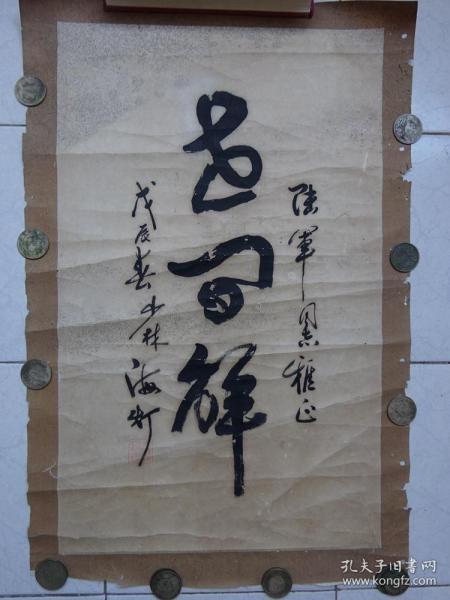 陆军同志雅正
世间解
戊辰春少林海灯
孔夫子旧书网
www.kongfz.com